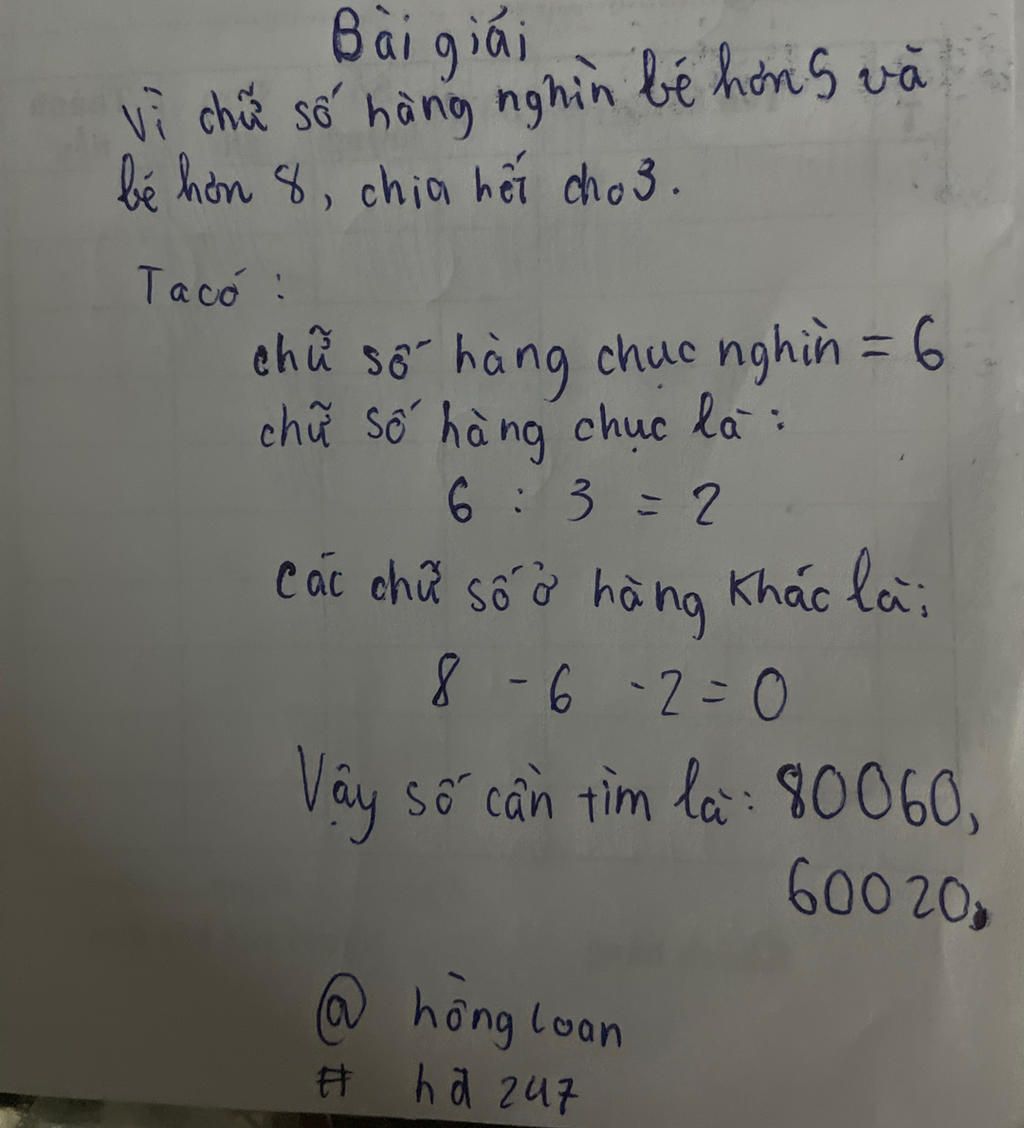 Bài giải
Vì chữ số hàng nghìn bé hơn 5 và
bé hơn 8, chia hết cho 3.
Ta có :
chữ số hàng chục nghìn = 6
chữ số hàng chục là :
6 : 3 = 2
các chữ số ở hàng khác là:
8 - 6 - 2 = 0
Vậy số cần tìm là: 80060,
60020,
@ hồng loan
# hđ 247